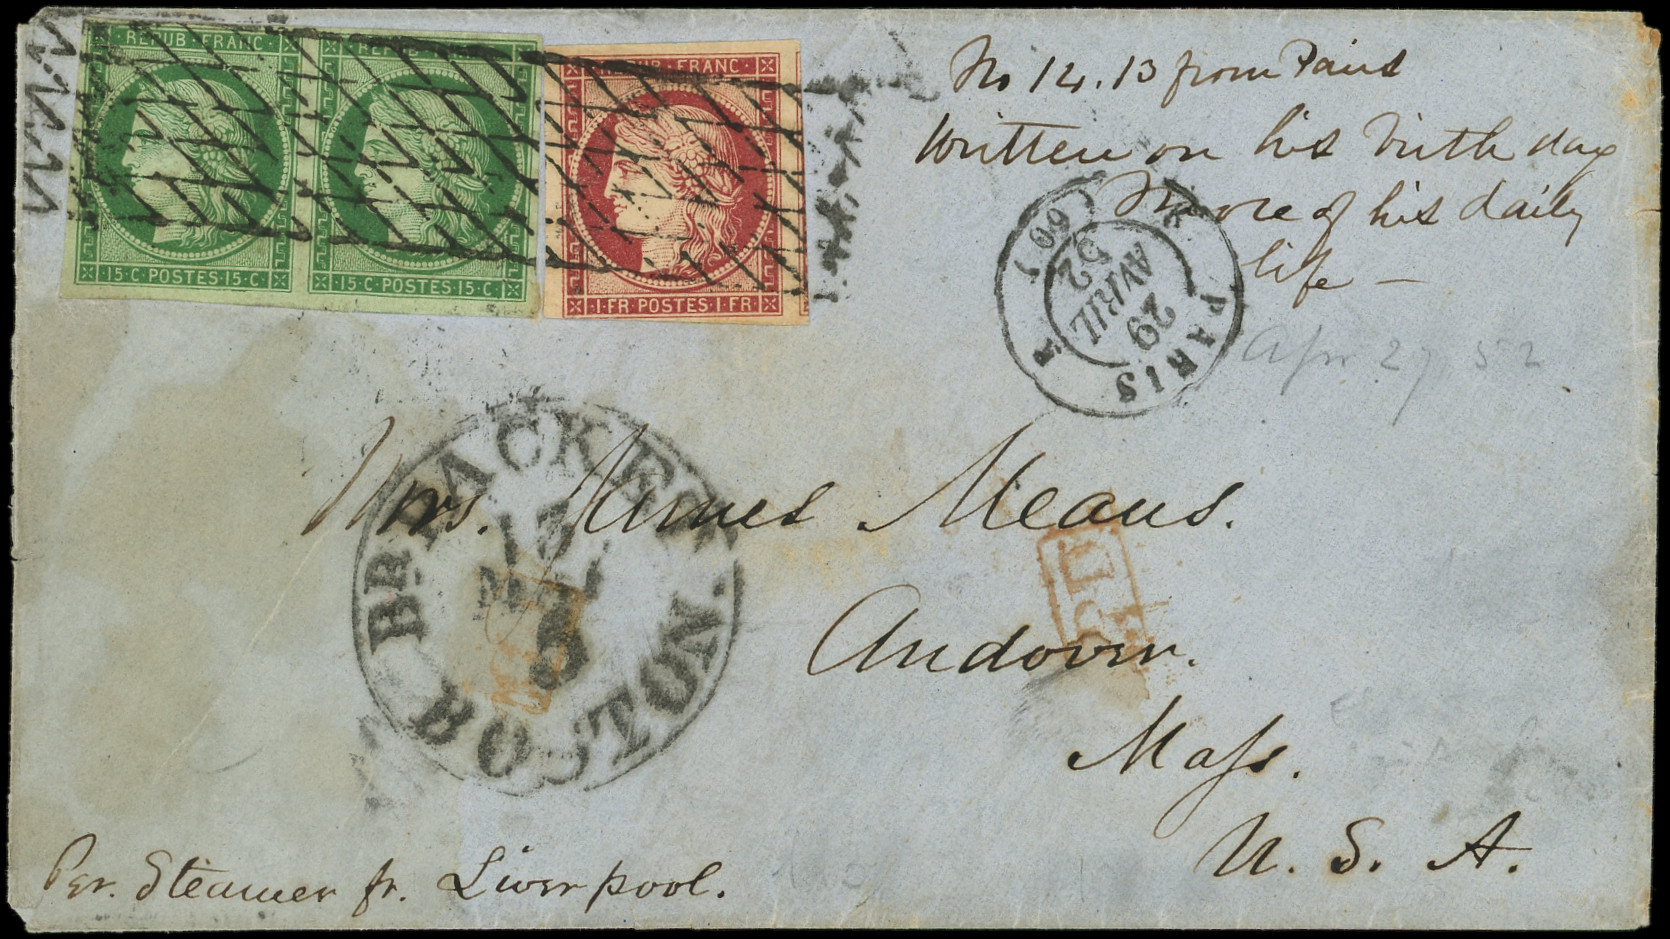 REPUB·FRANC·
REPUB·FRANC·
15·C·POSTES·15·C·
15·C·POSTES·15·C·
REPUB·FRANC·
1·FR·POSTES·1·FR·
No 14.13 from Paris
Written on his birth day
More of his daily
life –
PARIS
(60)
29
AVRIL
52
Apr 27, 52
BR. PACKET
BOSTON.
13
MAY
Mrs. James Means.
Andover.
Mass.
U. S. A.
Per. Steamer fr. Liverpool.